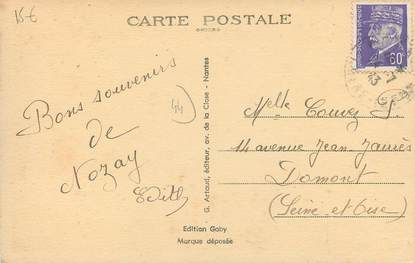 15€
CARTE POSTALE
60c
43
Bons souvenirs
de
Nozay
Edith
44
G. Artaud, éditeur, av. de la Close - Nantes
Melle Couvez P.
14 avenue Jean Jaurès
Domont
(Seine et Oise)
Edition Gaby
Marque déposée